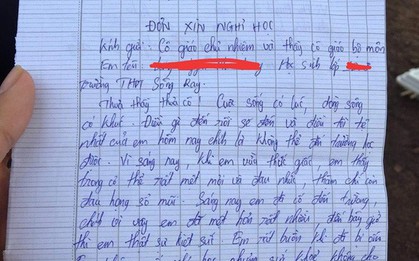 ĐƠN XIN NGHỈ HỌC
Kính gửi: Cô giáo chủ nhiệm và thầy cô giáo bộ môn
Em tên Học sinh lớp
Trường THPT Sông Ray.
Thưa thầy thưa cô! Cuộc sống có lúc, dòng sông
có khúc. Điều gì đến rồi sẽ đến và điều tồi tệ
nhất của em hôm nay chính là không thể đến trường học
được. Vì sáng nay, khi em vừa thức giấc em thấy
trong cơ thể rất mệt mỏi và đau nhức, thậm chí còn
đau họng sổ mũi. Sáng nay em đã cố đến trường,
chính vì vậy em đã mệt hơn rất nhiều đến bây giờ
thì em thật sự kiệt sức. Em rất buồn khi
học nhưng sức khoẻ không cho